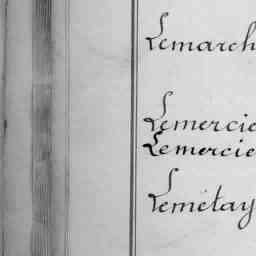 Lemarch
Lemercie
Lemercie
Lemétay